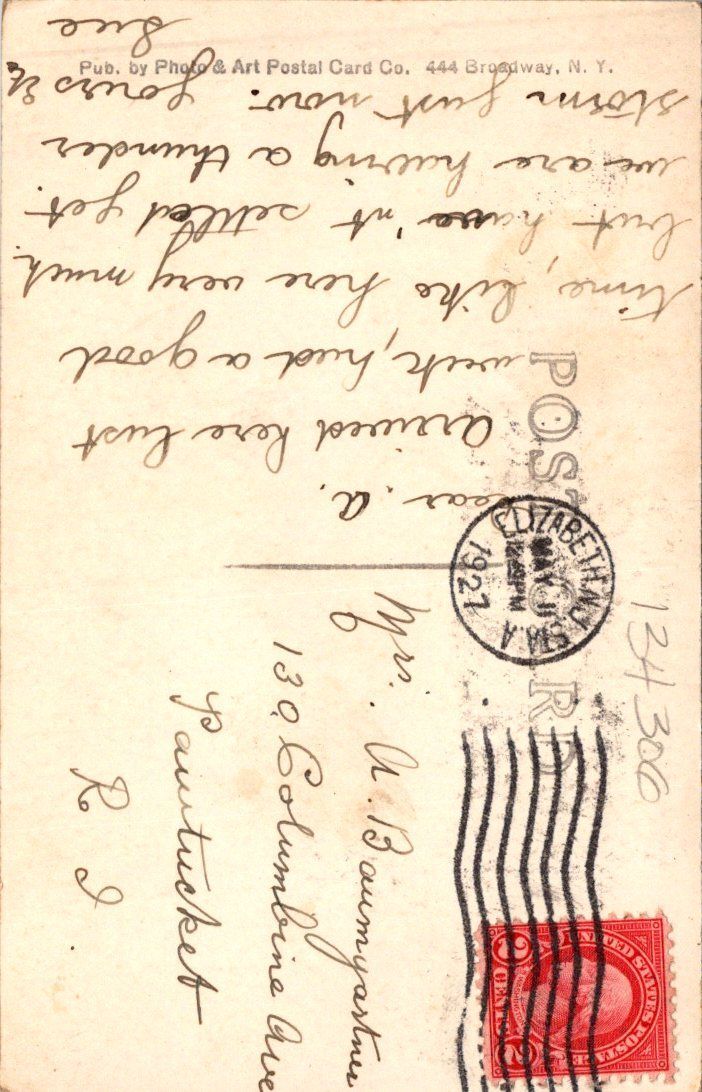 Pub. by Photo & Art Postal Card Co. 444 Broadway, N. Y.
POST CARD
134306
ELIZABETH, N.J. STA. A
MAY 11
PM
1927
UNITED STATES POSTAGE
2 CENTS 2
ear. A.
Arrived here last
week, had a good
time, like here very much
but have'nt settled yet.
we are having a thunder
storm just now. Yours
Sue
Mrs. A. Baumgartner
130 Columbine Ave
Pawtucket
R I